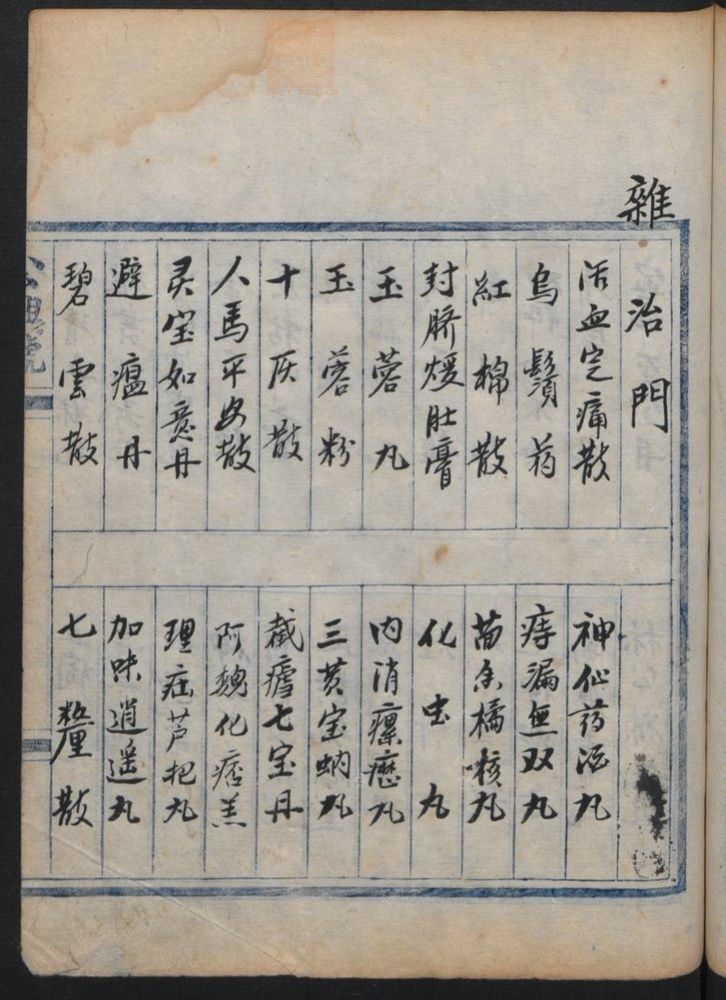 雜
治門
活血定痛散
烏鬚药
紅棉散
封脐煖肚膏
玉蓉丸
玉蓉粉
十灰散
人馬平安散
灵宝如意丹
避瘟丹
碧雲散
神仙药酒丸
痔漏無双丸
茴香橘核丸
化虫丸
内消瘰癧丸
三黄宝蜡丸
截瘧七宝丹
阿魏化痞羔
理疝芦杷丸
加味逍遥丸
七釐散